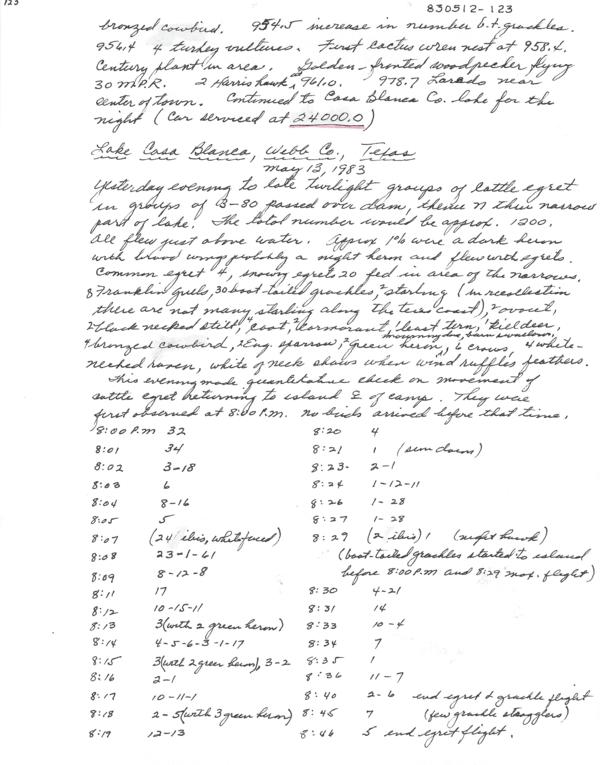 123
830512-123
bronzed cowbird. 954.5 increase in number b.t. grackles.
956.4 4 turkey vultures. First cactus wren nest at 958.4.
Century plant in area. Golden-fronted woodpecker flying
30 m.P.R. 2 Harris hawk, 961.0. 978.7 Laredo near
center of town. Continued to Casa Blanca Co. lake for the
night (Car serviced at 24000.0)
Lake Casa Blanca, Webb Co., Texas
May 13, 1983
Yesterday evening to late twilight groups of cattle egret
in groups of 3-80 passed over dam, thence N thru narrow
part of lake. The total number would be approx. 1200.
All flew just above water. Approx 1% were a dark heron
with broad wings probably a night heron and flew with egrets.
Common egret 4, snowy egrets 20 fed in area of the narrows.
8 Franklin gulls, 30 boat-tailed grackles, 2 starling (in recollection
there are not many starling along the texas coast), 2 avocet,
2 black necked stilt, 4 coot, 2 cormorant, 1 least tern, 1 killdeer,
mourning dove, barn swallow,
4 bronzed cowbird, 2 Eng. sparrow, 2 green heron, 6 crows, 4 white-
necked raven, white of neck shows when wind ruffles feathers.
This evening made quantitative check on movement of
cattle egret returning to island E of camp. They were
first observed at 8:00 P.M. No birds arrived before that time.
8:00 P.M 32
8:01 34
8:02 3-18
8:03 6
8:04 8-16
8:05 5
8:07 (24 ibis, whitefaced)
8:08 23-1-61
8:09 8-12-8
8:11 17
8:12 10-15-11
8:13 3 (with 2 green heron)
8:14 4-5-6-3-1-17
8:15 3 (with 2 green heron), 3-2
8:16 2-1
8:17 10-11-1
8:18 2-5 (with 3 green heron)
8:19 12-13
8:20 4
8:21 1 (sun down)
8:23- 2-1
8:24 1-12-11
8:26 1-28
8:27 1-28
8:29 (2 ibis) 1 (night hawk)
(boat-tailed grackles started to island
before 8:00 P.M and 8:29 max. flight)
8:30 4-21
8:31 14
8:33 10-4
8:34 7
8:35 1
8:36 11-7
8:40 2-6 end egret & grackle flight
8:45 7 (few grackle stragglers)
8:46 5 end egret flight.